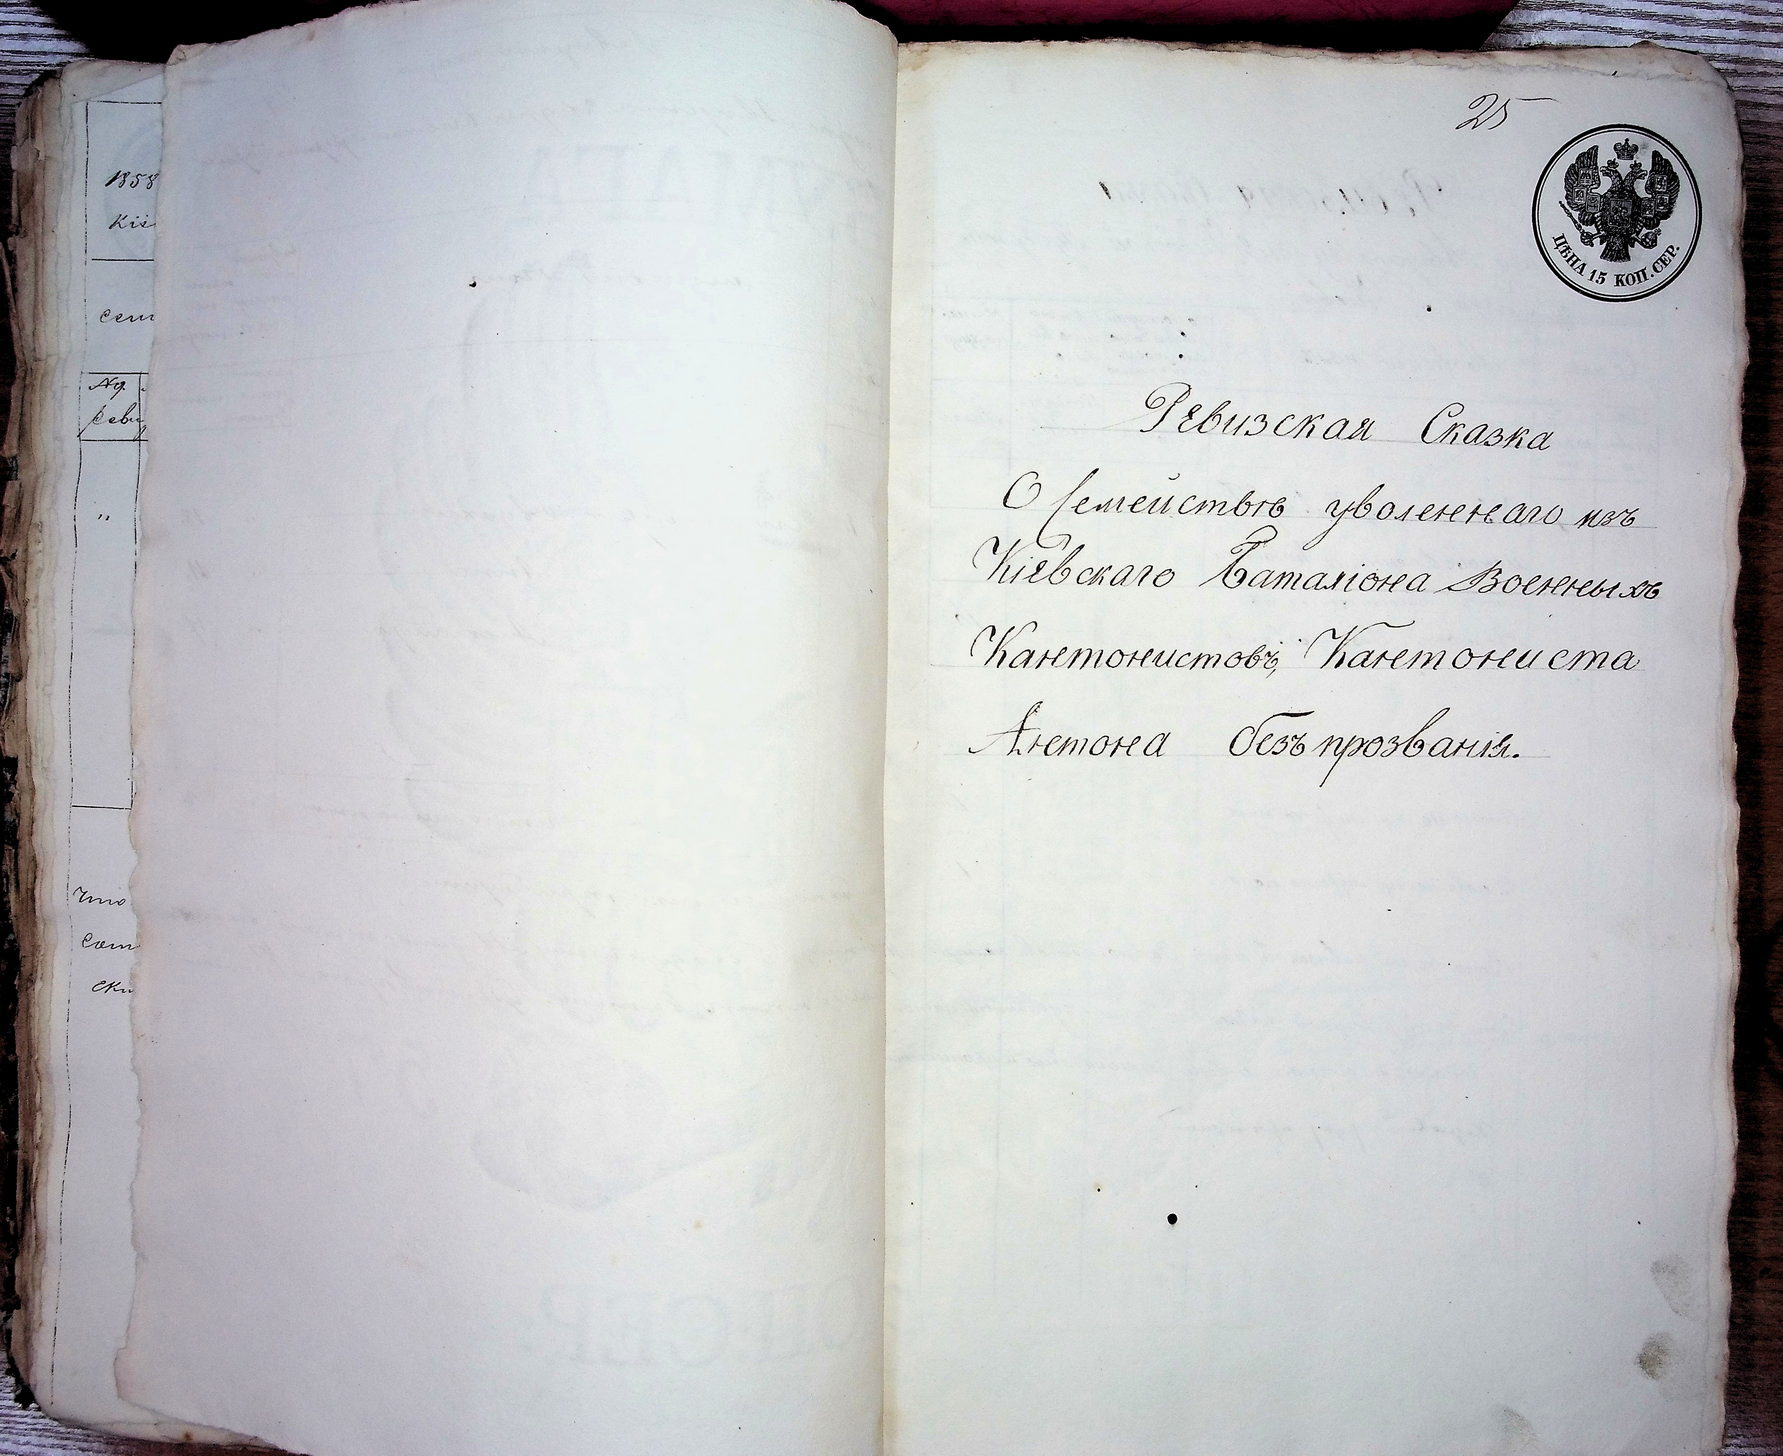 1858
Кіе
семи
№
реви
"
что
сот
ски
25
ЦѢНА 15 КОП. СЕР.
Ревизская Сказка
О Семействѣ уволеннаго изъ
Кіевскаго Баталіона Военныхъ
Кантонистовъ, Кантониста
Антона безъ прозванія.